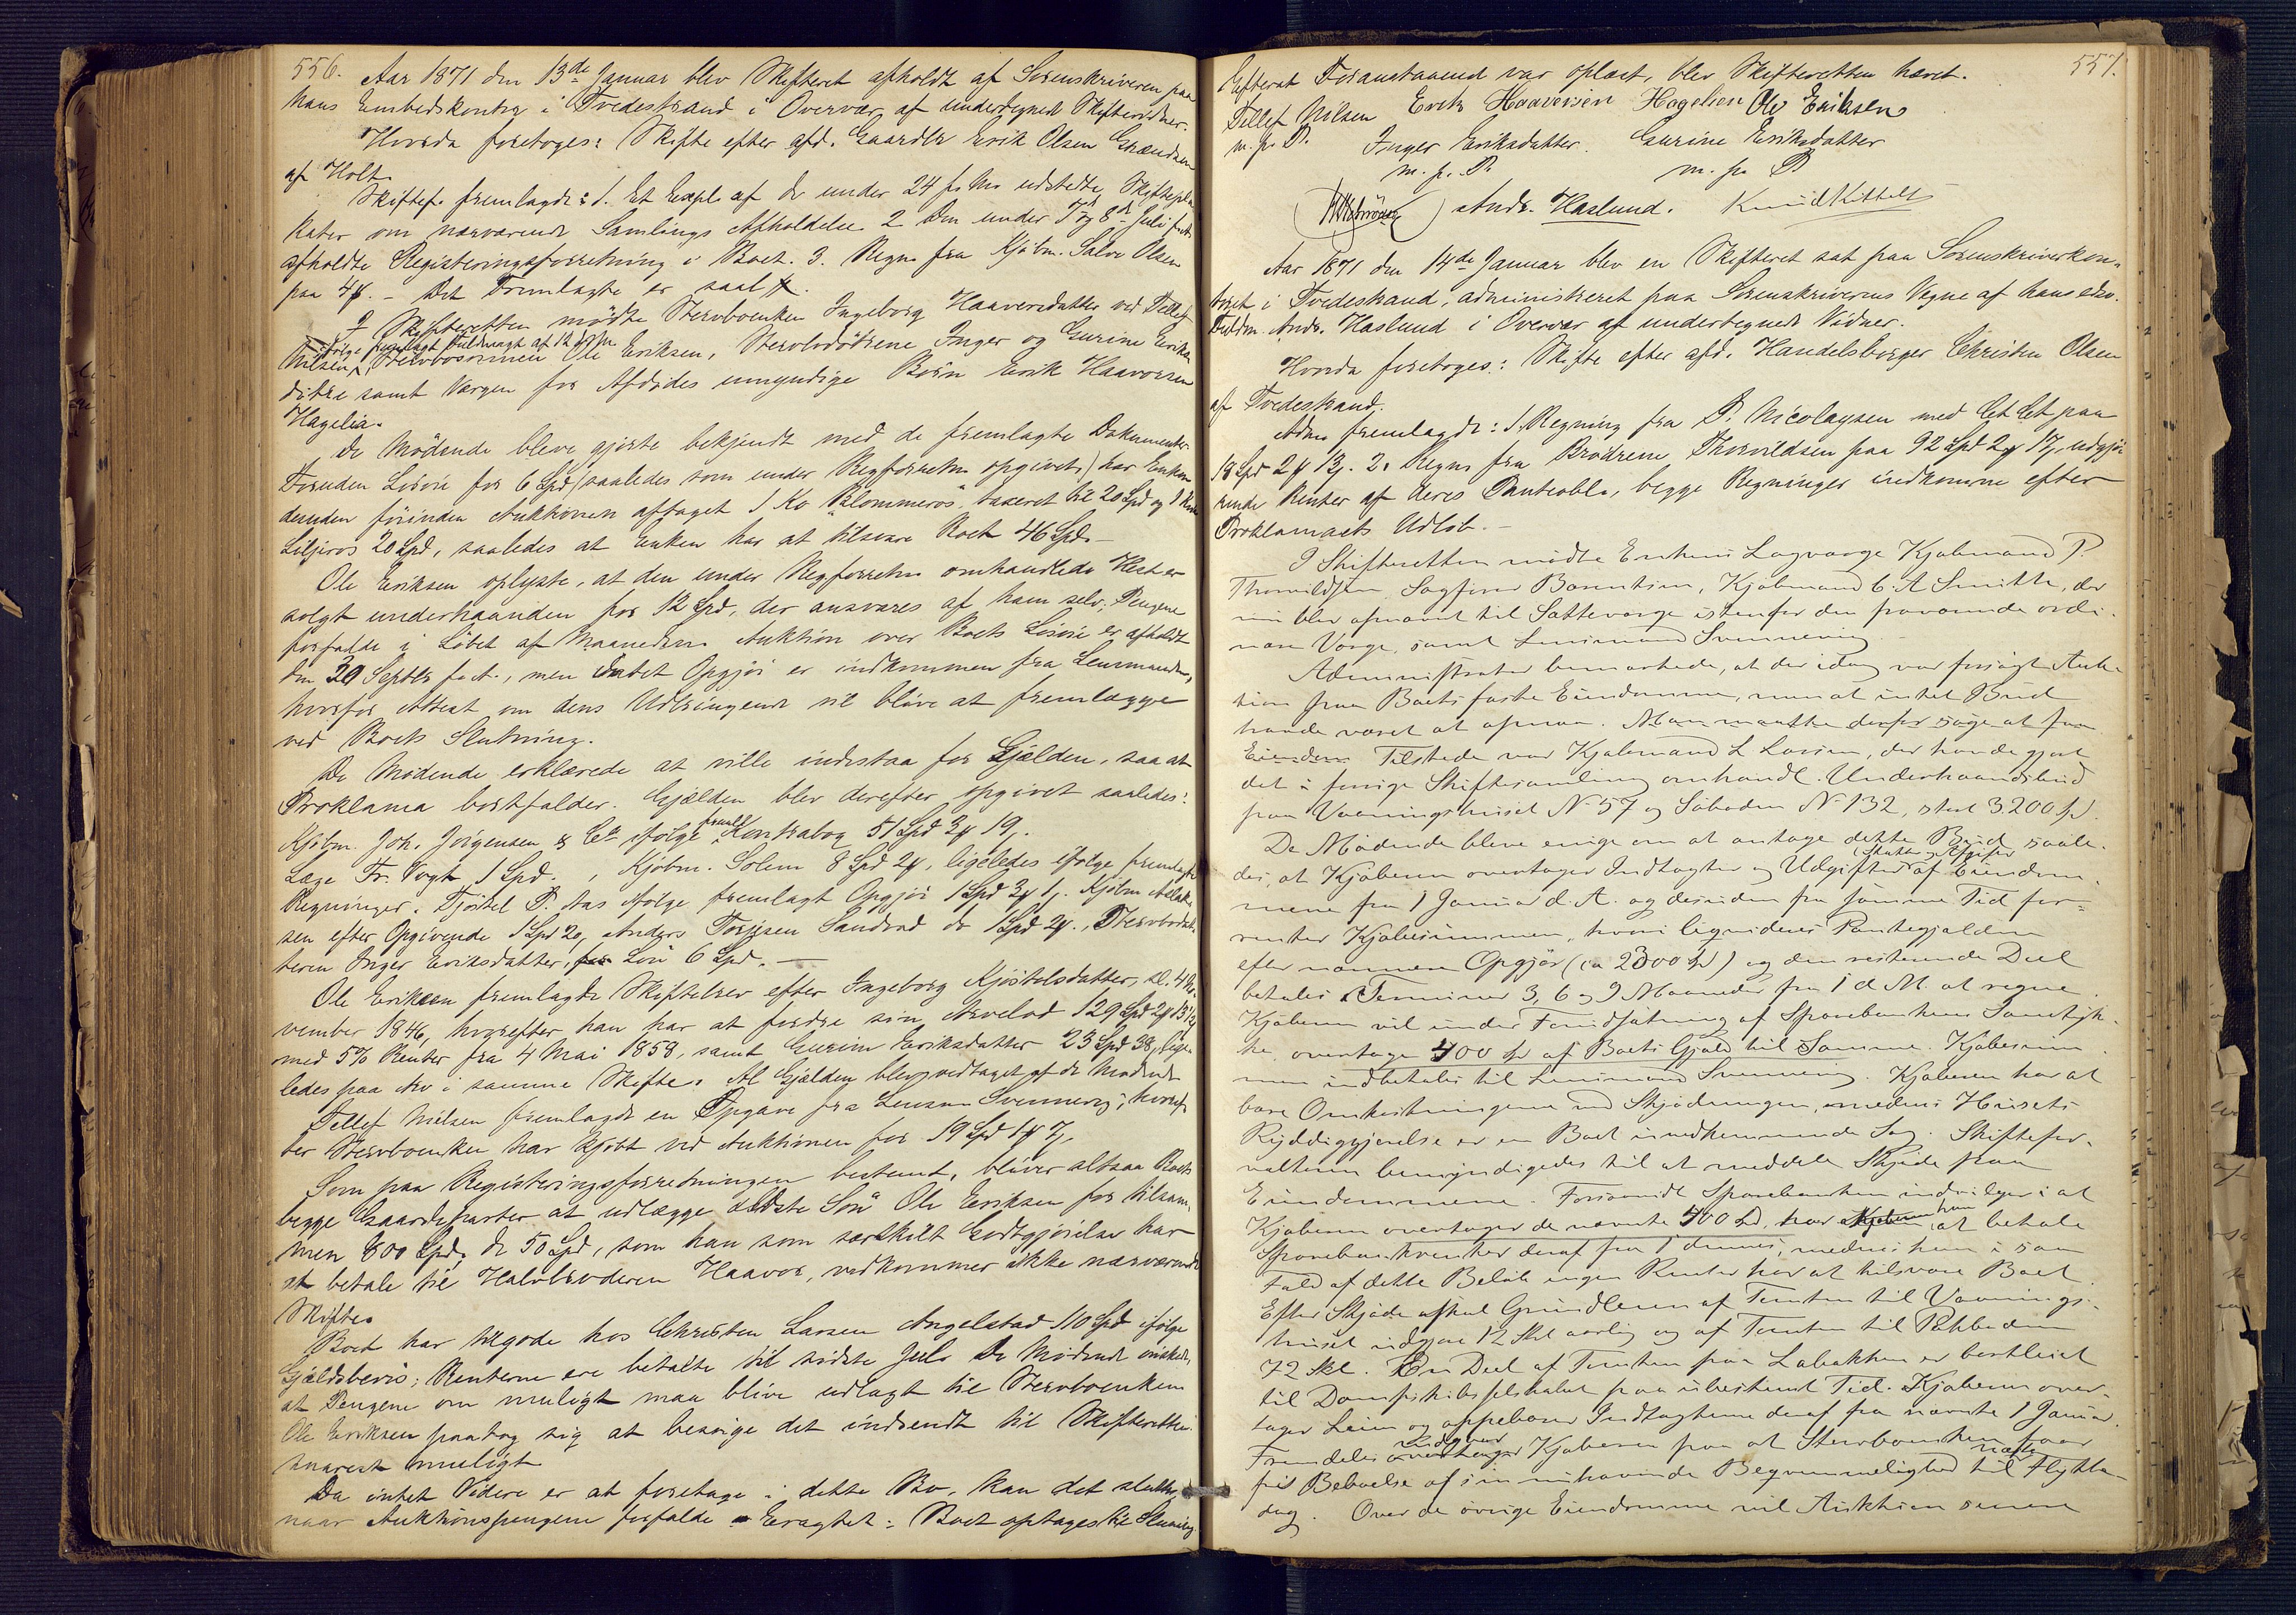 556.
Aar 1871 den 13de Januar blev Skifteret afholdt af Sorenskriveren paa
hans Embedskontor i Tvedestrand i Overvær af undertegnede Skiftevidner.
Hvorda foretoges: Skifte efter afd. Gaardbr Erik Olsen
af Holt.
Skiftef. fremlagde: 1. Et Expl. af de under 24 f. M. udstedte Skiftepla
kater om nærværende Samlings Afholdelse 2 Den under 7 og 8de Juli
afholdte Registeringsforretning i Boet. 3. Regn. fra Kjøbm. Salve Olsen
paa 4 . – Det Fremlagte er saal.
I Skifteretten mødte Stervboenken Ingeborg Haaversdatter ved Tellef
ifølge fremlagt Fuldmagt af 12 ds
Nilsen, Stervbosønnen Ole Eriksen, Stervbodøtrene Inger og Gurine Eriks
døtre samt Værgen for Afdødes umyndige Børn Erik Haavorsen
Hagelia.
De Mødende bleve gjorte bekjendt med de fremlagte Dokumenter.
Foruden Løsøre for 6 Spd (saaledes som under Regforretn opgivet) har Enken
desuden førinden Auktionen aftaget 1 Ko "Blommerøs" taxeret til 20 Spd og 1
Liljeros 20 Spd, saaledes at Enken har at tilsvare Boet 46 Spd. –
Ole Eriksen oplyste, at den under Regforretn omhandlede Hest er
solgt underhaanden for 12 Spd, der ansvares af ham selv; Pengene
forfalde i Løbet af Maaneden. Auktion over Boets Løsøre er afholdt
den 30 Septbr f. A., men Intet Opgjør er indkommen fra Lensmanden,
hvorfor Attest om dens Udbringende vil blive at fremlægge
ved Boets Slutning.
De Mødende erklærede at ville indestaa for Gjælden, saa at
Proklama bortfalder. Gjælden blev derefter opgivet saaledes:
Kjøbm. Joh. Jørgensen & Co ifølge freml. Kontrabog 51 Spd 3 19,
Læge Fr. Vogt 1 Spd. , Kjøbm. Solem 8 Spd 2, ligeledes ifølge fremlagte
Regninger. Tjøstel P. Aas ifølge fremlagt Opgjør 1 Spd 3 1. Kjøbm
sen efter Opgivende 1 Spd 20, Anders Torjesen Sandvad do 1 Spd 2., Stervbodat
teren Inger Eriksdatter, for Løn 6 Spd. –
Ole Eriksen fremlagde Skiftebrev efter Ingeborg Kjøstelsdatter, sl. 4 No
vember 1846, hvorefter han har at fordre sin Arvelod 129 Spd 2 13
med 5% Renter fra 4 Mai 1858, samt Gurine Eriksdatter 23 Spd 38, lige
ledes paa Arv i samme Skifte. Al Gjælden blev vedtaget af de Mødende
Tellef Nielsen fremlagde en Opgave fra Lensm Svenneviig, hvoref
ter Stervboenken har kjøbt ved Auktionen for 19 Spd 1 7,
Som paa Registeringsforretningen bestemt, bliver altsaa Boets
begge Gaardeparter at udlægge ældste Søn Ole Eriksen for tilsam
men 800 Spd. De 50 Spd, som han som særskilt Godtgjørelse har
at betale til Halvbroderen Haavor, vedkommer ikke nærværende
Skifte.
Boet har tilgode hos Christen Larsen Angelstad 110 Spd ifølge
Gjældsbevis; Renterne ere betalte til sidste Jul. De Mødende ønskede,
at Pengene om muligt maa blive udlagt til Stervboenken
Ole Eriksen paatog sig at besørge det indsendt til Skifteretten
snarest muligt
Da intet Videre er at foretage i dette Bo, kan det slutte
naar Auktionspengene forfalde. Eragtet: Boet optages til Slutning
557.
Efterat Foranstaaende var oplæst, blev Skifteretten hævet.
Tellef Nilsen Erik Haavorsen Hagelien Ole Eriksen
m. p. P.
Inger Eriksdatter. Gurine Eriksdatter
m. p. P. m. p. P
Andr. Haslund. Knud Kittels
Aar 1871 den 14de Januar blev en Skifteret sat paa Sorenskriverkon-
toret i Tvedestrand, administreret paa Sorenskriverens Vegne af hans edsv.
Fuldm. Andr. Haslund i Overvær af undertegnede Vidner.
Hvorda foretoges: Skifte efter afd. Handelsborger Christen Olsen
af Tvedestrand.
Adm. fremlagde: 1. Regning fra P. Nicolaysen med Et Et paa
18 Spd 2 12. 2. Regn. fra Brødrene Thorvildsen paa 92 Spd 2 17, udgjø
rende Renter af deres Panteobl., begge Regninger indkomne efter
Proklamaets Udløb. –
I Skifteretten mødte Enkens Lagværge Kjøbmand P.
Thorvildsen, Sagfører Barentsen, Kjøbmand C. A Smith, der
nu blev opnævnt til Sætteværge istenfor den fraværende ordi-
nære Værge, samt Lensmand Svennevig
Administrator bemærkede, at der idag var forsøgt Auk-
tion paa Boets faste Eiendomme, men at intet Bud
havde været at opnaa. Man maatte derfor søge at faa
Tilstede var Kjøbmand L Larsen, der havde gjort
det i forrige Skiftesamling omhandl. Underhaandsbud
paa Vaaningshuset No 57 og Søboden No 132, stort 3200 Spd.
De Mødende bleve enige om at antage dette Bud saale-
des, at Kjøberen overtager Indtægter og Udgifter (Skatter og Afgifter) af Eiendom-
mene fra 1 Januar d. A. og desuden fra samme Tid for-
renter Kjøbesummen, hvori liqvideres Pantegjælden
efter nærmere Opgjør (ca 2300 Spd) og den resterende Deel
betales i Terminer 3, 6 og 9 Maaneder fra 1 d M. at regne.
Kjøberen vil under Forudsætning af Sparebankens Samtyk-
ke overtage 400 Spd af Boets Gjæld til Samme. Kjøbesum
men indbetales til Lensmand Svennevig. Kjøberen har at
bære Omkostningerne ved Skjødningen, medens Husets
Ryddiggjørelse er en Boet uvedkommende Sag. Skiftefor-
valteren bemyndigedes til at meddele Skjøde paa
Eiendommene. Forsaavidt Sparebanken indvilger i at
Kjøberen overtager de nævnte 400 Spd, har han at betale
Sparebankrenter deraf fra 1 dennes, medens han i saa
Fald af dette Beløb ingen Renter har at tilsvare Boet.
Efter Skjøde afskal Grundleien af Tomten til Vaanings-
huset udgjøre 12 Skl aarlig og af Tomten til Pakboden
72 Skl. En Deel af Tomten paa Labakken er bortleiet
til Dampskibsselskabet paa ubestemt Tid. Kjøberen over-
tager Leien og oppebærer Indtægterne deraf fra nævnte 1 Januar.
Fremdeles indgaar Kjøberen paa at Stervboenken faar
fri Beboelse af sin nuhavende Beqvemmelighed til næste Flytte-
dag. Over de øvrige Eiendomme vil Auktion senere